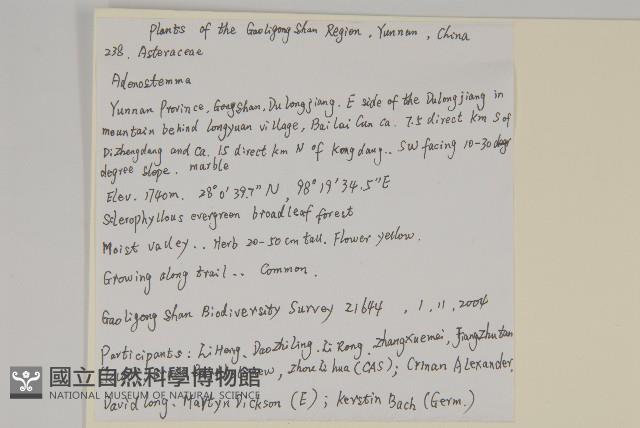 Plants of the Gaoligong Shan Region, Yunnan, China
238. Asteraceae
Adenostemma
Yunnan Province, Gongshan, Dulongjiang. E side of the Dulongjiang in
mountain behind Longyuan village, Bai lai Cun ca. 7.5 direct km S of
Dizhengdang and ca. 15 direct km N of Kongdang.. SW facing 10-30 degr
degree slope. marble
Elev. 1740m. 28°0'39.7"N, 98°19'34.5"E
Sclerophyllous evergreen broadleaf forest
Moist valley.. Herb 20-50 cm tall. Flower yellow.
Growing along trail.. Common.
Gaoligong Shan Biodiversity Survey 21644 , 1, 11, 2004
Participants: Li Heng, Dao Zhiling, Li Rong, Zhang Xuemei, Jiang Zhutan
Zhou Li hua (CAS); Crinan Alexander,
國立自然科學博物館
NATIONAL MUSEUM OF NATURAL SCIENCE
David Long, Martyn Dickson (E); Kerstin Bach (Germ.)